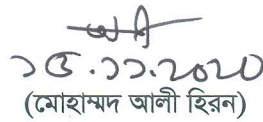 ১৫.১১.২০২০
(মোহাম্মদ আলী হিরন)